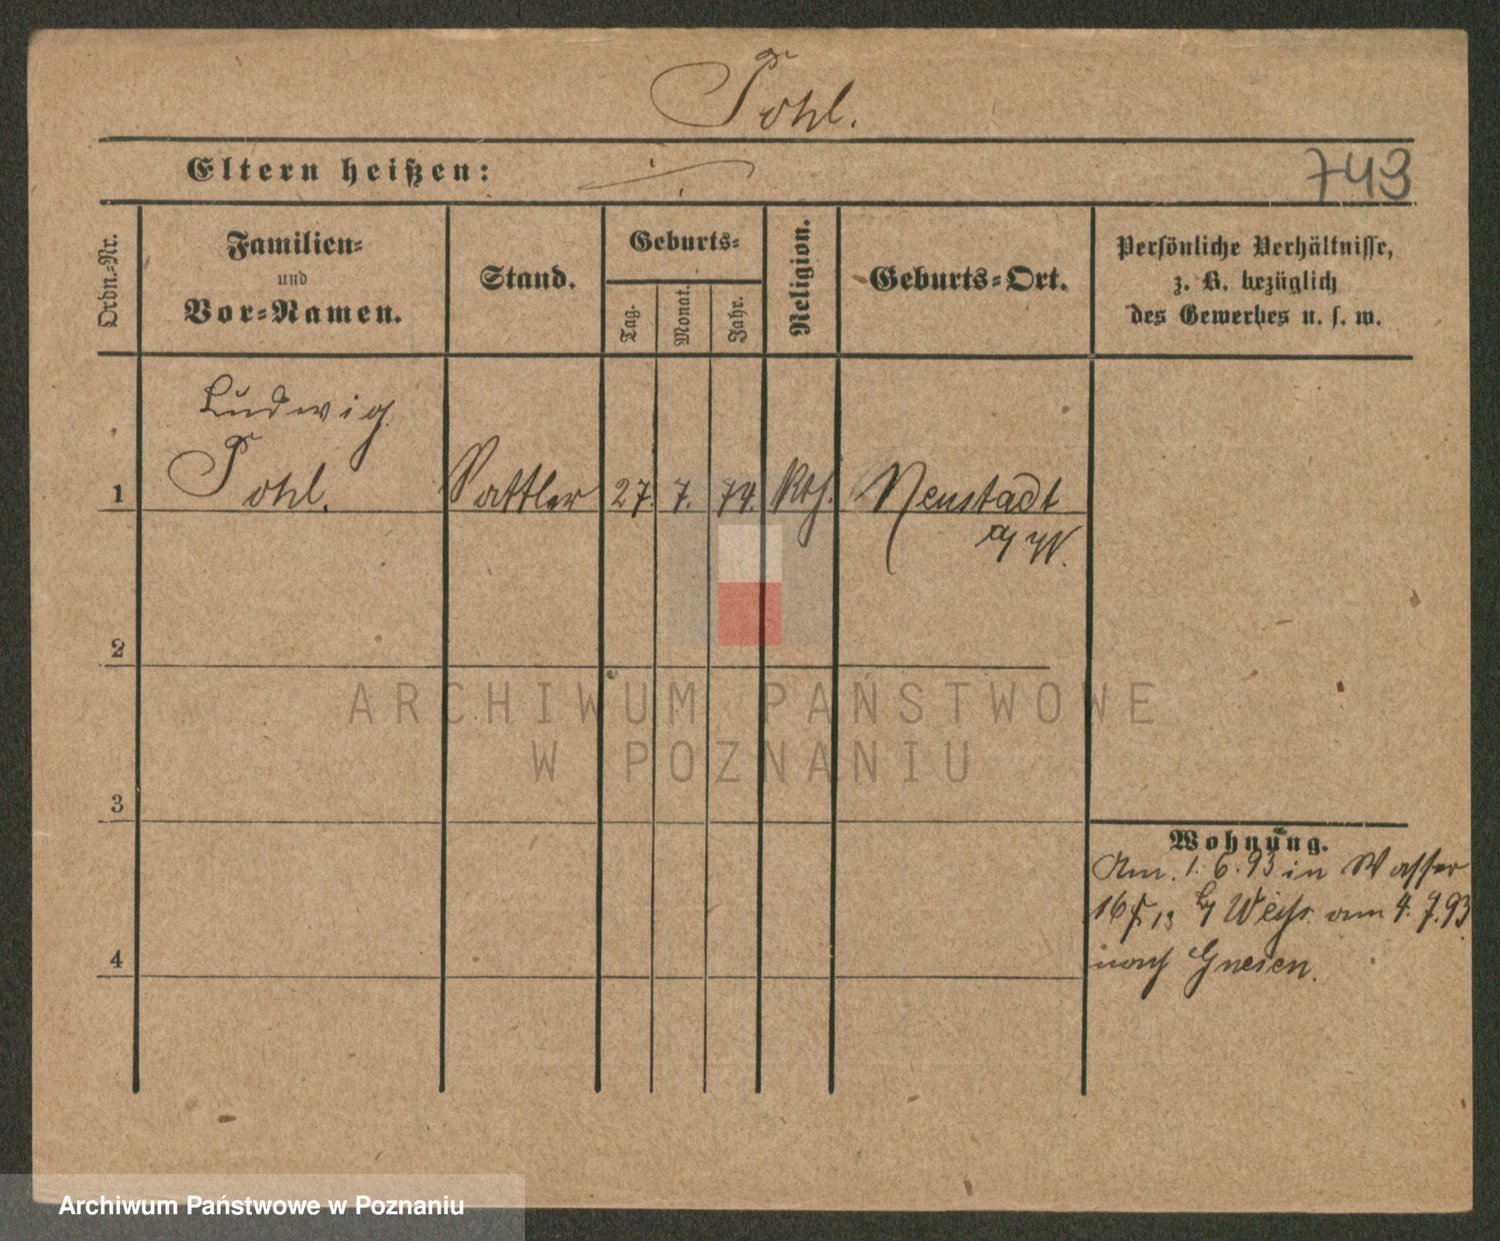 Pohl.
Eltern heißen:
743
Ordn.-Nr.
Familien-
und
Vor-Namen.
Stand.
Geburts-
Tag.
Monat.
Jahr.
Religion.
Geburts-Ort.
Persönliche Verhältnisse,
z. B. bezüglich
des Gewerbes u. s. w.
Ludwig
1 Pohl. Sattler 27. 7. 74. Kth. Neustadt
a/W.
2
ARCHIWUM PAŃSTWOWE
W POZNANIU
3
Wohnung.
Am. 1. 6. 93 in Wasser
16 13 b/ Weiß. am 4. 7. 93
4
nach Gnesen.
Archiwum Państwowe w Poznaniu